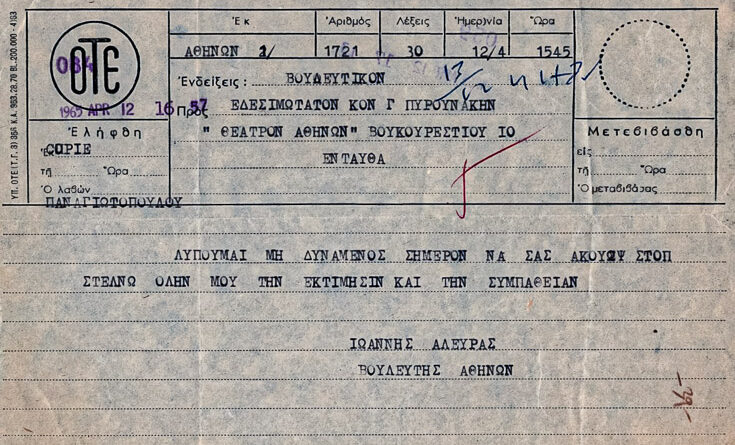 Ἐκ Ἀριθμός Λέξεις Ἡμερ)νία Ὥρα
ΑΘΗΝΩΝ 2/ 1721 30 12/4 1545
ΟΤΕ
084
Ἐνδείξεις : ΒΟΥΛΕΥΤΙΚΟΝ
1965 APR 12 16 57
Πρός ΕΔΕΣΙΜΩΤΑΤΟΝ ΚΟΝ Γ ΠΥΡΟΥΝΑΚΗΝ
" ΘΕΑΤΡΟΝ ΑΘΗΝΩΝ" ΒΟΥΚΟΥΡΕΣΤΙΟΥ ΙΟ
ΕΝΤΑΥΘΑ
Ἐλήφθη
COPIE
τῇ Ὥρα
Ὁ λαβών
ΠΑΝΑΓΙΩΤΟΠΟΥΛΟΥ
Μετεβιβάσθη
εἰς
τῇ Ὥρα
Ὁ μεταβιβάσας
ΥΠ. ΟΤΕ (Τ.Γ. 3) 386 Κ.Α.
ΛΥΠΟΥΜΑΙ ΜΗ ΔΥΝΑΜΕΝΟΣ ΣΗΜΕΡΟΝ ΝΑ ΣΑΣ ΑΚΟΥΣΩ ΣΤΟΠ
ΣΤΕΛΝΩ ΟΛΗΝ ΜΟΥ ΤΗΝ ΕΚΤΙΜΗΣΙΝ ΚΑΙ ΤΗΝ ΣΥΜΠΑΘΕΙΑΝ
ΙΩΑΝΝΗΣ ΑΛΕΥΡΑΣ
ΒΟΥΛΕΥΤΗΣ ΑΘΗΝΩΝ